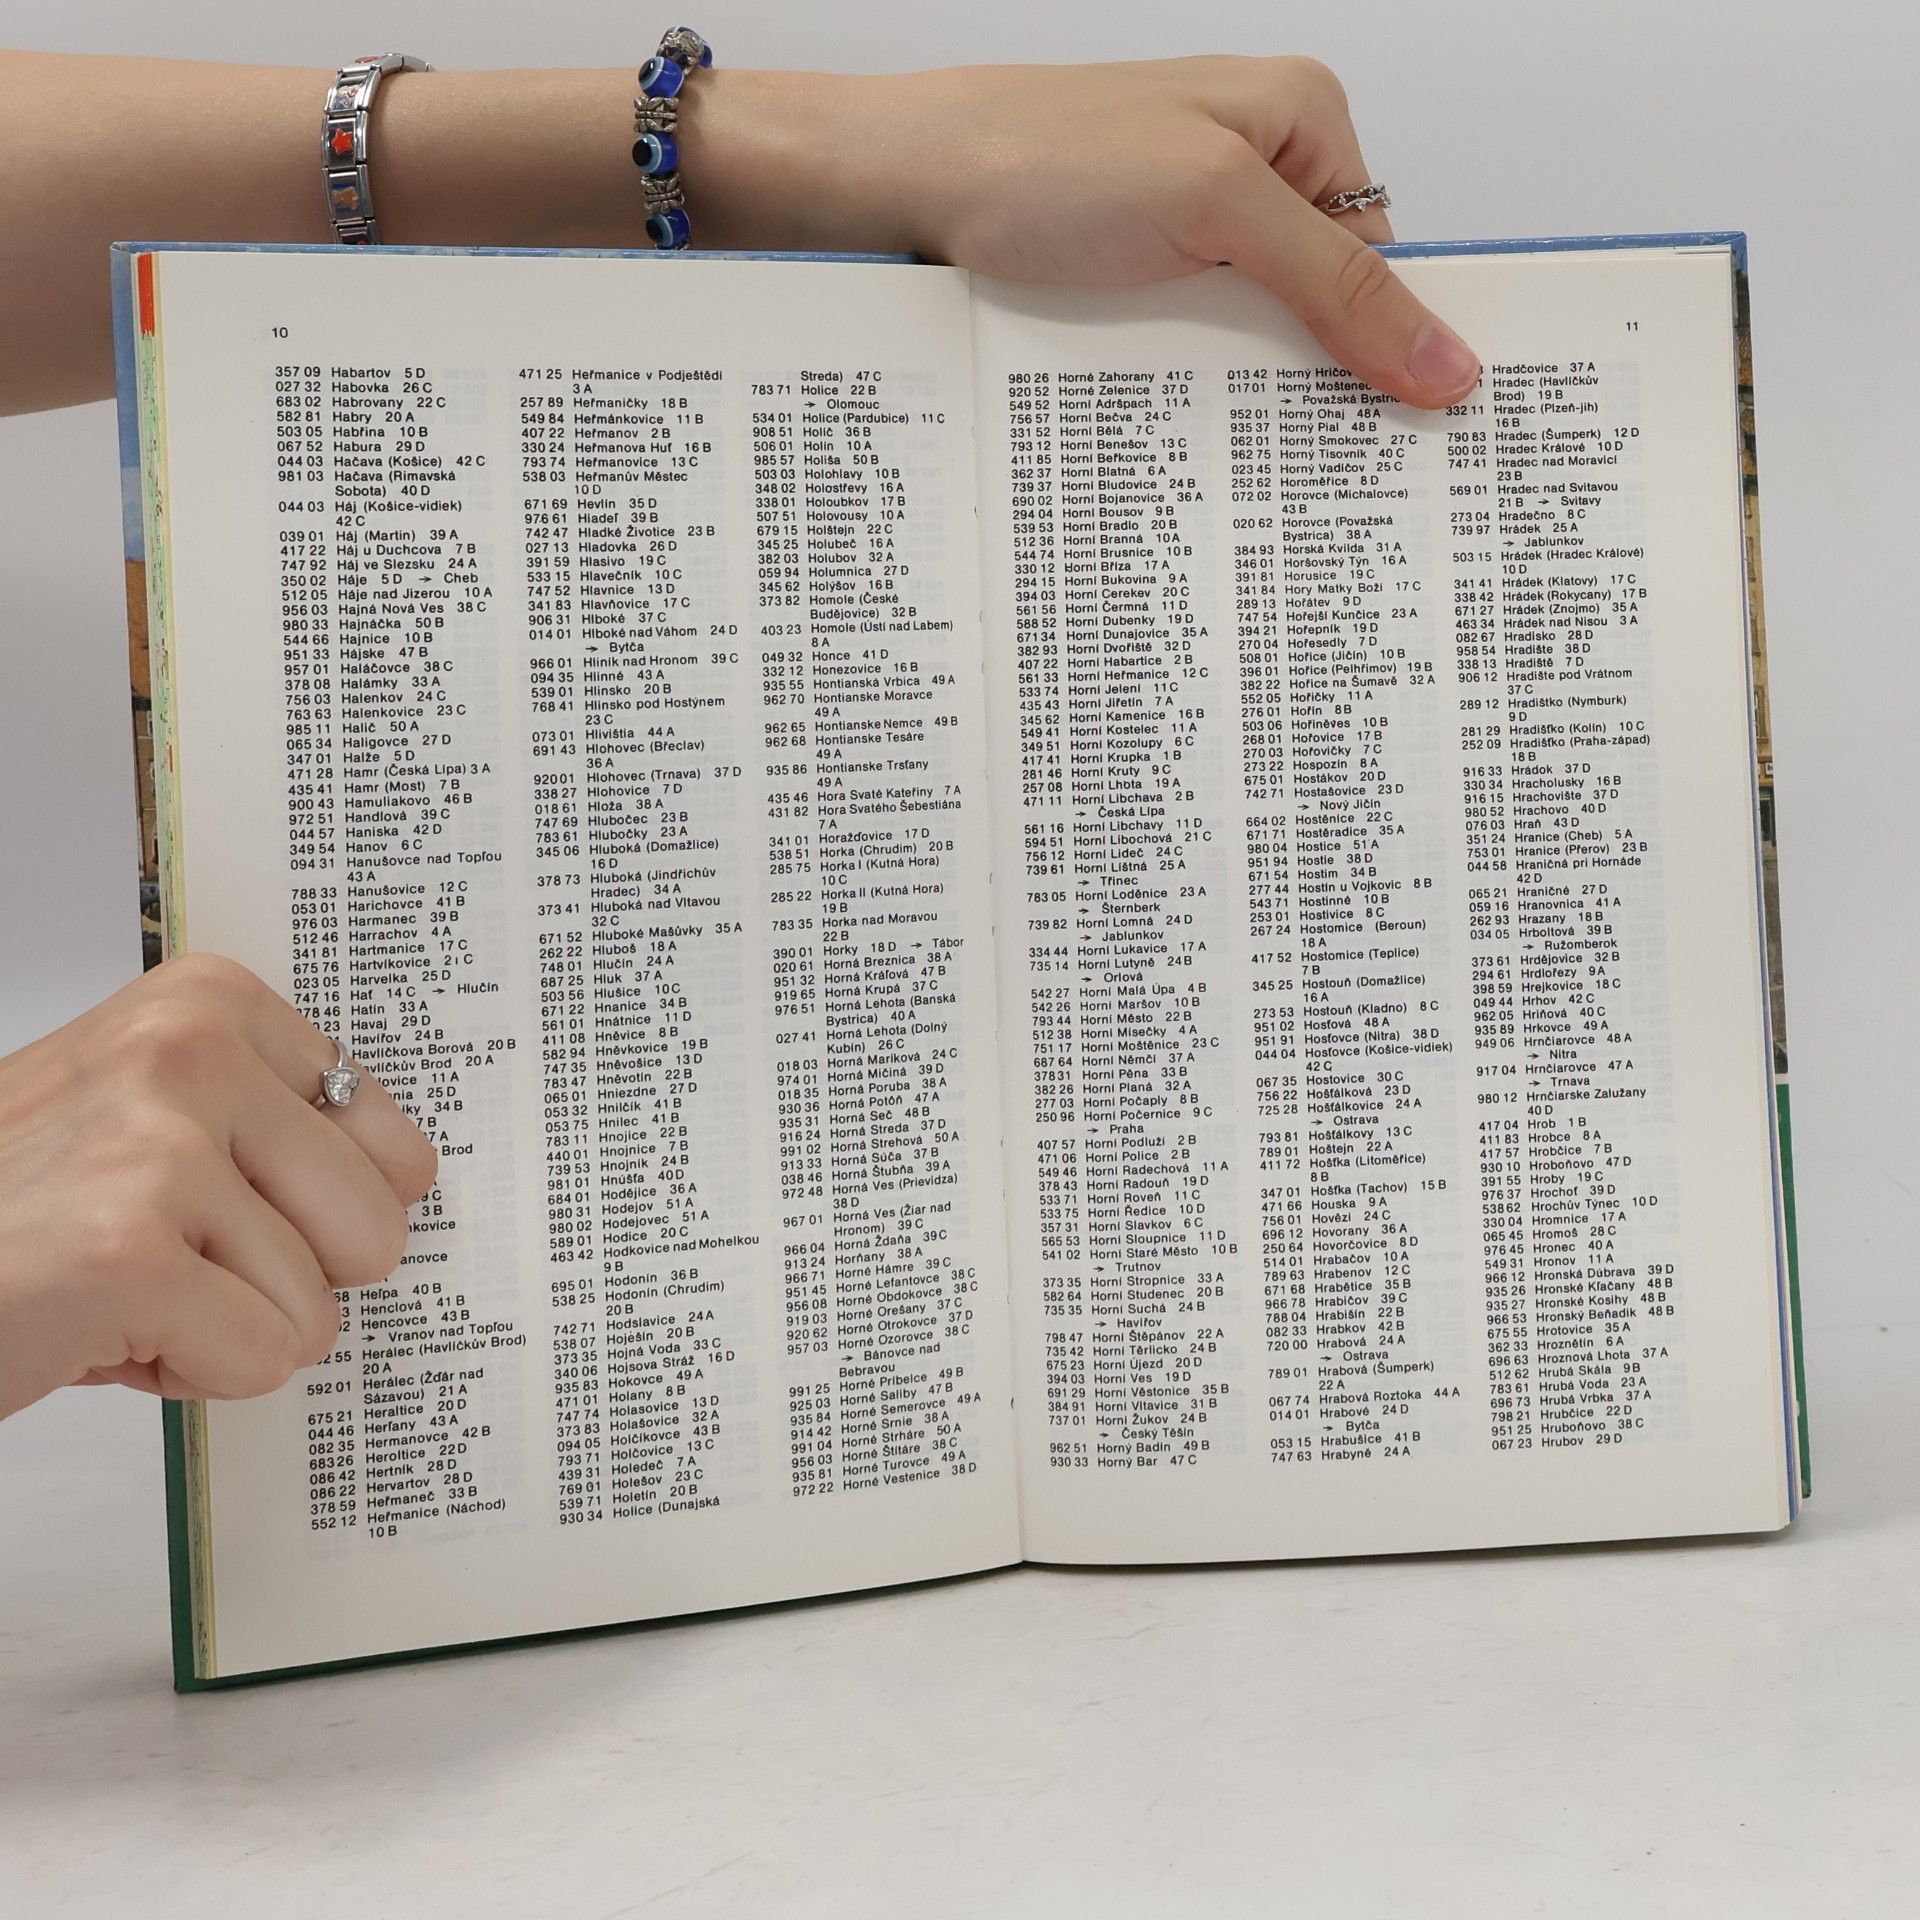 10
357 09 Habartov 5 D
027 32 Habovka 26 C
683 02 Habrovany 22 C
582 81 Habry 20 A
503 05 Habřina 10 B
067 52 Habura 29 D
044 03 Hačava (Košice) 42 C
981 03 Hačava (Rimavská
Sobota) 40 D
044 03 Háj (Košice-vidiek)
42 C
039 01 Háj (Martin) 39 A
417 22 Háj u Duchcova 7 B
747 92 Háj ve Slezsku 24 A
350 02 Háje 5 D → Cheb
512 05 Háje nad Jizerou 10 A
956 03 Hajná Nová Ves 38 C
980 33 Hajnáčka 50 B
544 66 Hajnice 10 B
951 33 Hájske 47 B
957 01 Haláčovce 38 C
378 08 Halámky 33 A
756 03 Halenkov 24 C
763 63 Halenkovice 23 C
985 11 Halič 50 A
065 34 Haligovce 27 D
347 01 Halže 5 D
471 28 Hamr (Česká Lípa) 3 A
435 41 Hamr (Most) 7 B
900 43 Hamuliakovo 46 B
972 51 Handlová 39 C
044 57 Haniska 42 D
349 54 Hanov 6 C
094 31 Hanušovce nad Topľou
43 A
788 33 Hanušovice 12 C
053 01 Harichovce 41 B
976 03 Harmanec 39 B
512 46 Harrachov 4 A
341 81 Hartmanice 17 C
675 76 Hartvíkovice 21 C
023 05 Harvelka 25 D
747 16 Hať 14 C → Hlučín
378 46 Hatín 33 A
23 Havaj 29 D
Havířov 24 B
Havlíčkova Borová 20 B
avlíčkův Brod 20 A
lovice 11 A
nia 25 D
íky 34 B
7 B
7 A
Brod
9 C
3 B
nkovice
anovce
A
68 Heľpa 40 B
3 Henclová 41 B
02 Hencovce 43 B
→ Vranov nad Topľou
52 55 Herálec (Havlíčkův Brod)
20 A
592 01 Herálec (Žďár nad
Sázavou) 21 A
675 21 Heraltice 20 D
044 46 Herľany 43 A
082 35 Hermanovce 42 B
683 26 Heroltice 22 D
086 42 Hertník 28 D
086 22 Hervartov 28 D
378 59 Heřmaneč 33 B
552 12 Heřmanice (Náchod)
10 B
471 25 Heřmanice v Podještědí
3 A
257 89 Heřmaničky 18 B
549 84 Heřmánkovice 11 B
407 22 Heřmanov 2 B
330 24 Heřmanova Huť 16 B
793 74 Heřmanovice 13 C
538 03 Heřmanův Městec
10 D
671 69 Hevlín 35 D
976 61 Hiadeľ 39 B
742 47 Hladké Životice 23 B
027 13 Hladovka 26 D
391 59 Hlasivo 19 C
533 15 Hlavečník 10 C
747 52 Hlavnice 13 D
341 83 Hlavňovice 17 C
906 31 Hlboké 37 C
014 01 Hlboké nad Váhom 24 D
→ Bytča
966 01 Hliník nad Hronom 39 C
094 35 Hlinné 43 A
539 01 Hlinsko 20 B
768 41 Hlinsko pod Hostýnem
23 C
073 01 Hlivištia 44 A
691 43 Hlohovec (Břeclav)
36 A
920 01 Hlohovec (Trnava) 37 D
338 27 Hlohovice 7 D
018 61 Hloža 38 A
747 69 Hlubočec 23 B
783 61 Hlubočky 23 A
345 06 Hluboká (Domažlice)
16 D
378 73 Hluboká (Jindřichův
Hradec) 34 A
373 41 Hluboká nad Vltavou
32 C
671 52 Hluboké Mašůvky 35 A
262 22 Hluboš 18 A
748 01 Hlučín 24 A
687 25 Hluk 37 A
503 56 Hlušice 10 C
671 22 Hnanice 34 B
561 01 Hnátnice 11 D
411 08 Hněvice 8 B
582 94 Hněvkovice 19 B
747 35 Hněvošice 13 D
783 47 Hněvotín 22 B
065 01 Hniezdne 27 D
053 32 Hnilčík 41 B
053 75 Hnilec 41 B
783 11 Hnojice 22 B
440 01 Hnojnice 7 B
739 53 Hnojník 24 B
981 01 Hnúšťa 40 D
684 01 Hodějice 36 A
980 31 Hodejov 51 A
980 02 Hodejovec 51 A
589 01 Hodice 20 C
463 42 Hodkovice nad Mohelkou
9 B
695 01 Hodonín 36 B
538 25 Hodonín (Chrudim)
20 B
742 71 Hodslavice 24 A
538 07 Hoješín 20 B
373 35 Hojná Voda 33 C
340 06 Hojsova Stráž 16 D
935 83 Hokovce 49 A
471 01 Holany 8 B
747 74 Holasovice 13 D
373 83 Holašovice 32 A
094 05 Holčíkovce 43 B
793 71 Holčovice 13 C
439 31 Holedeč 7 A
769 01 Holešov 23 C
539 71 Holetín 20 B
930 34 Holice (Dunajská
Streda) 47 C
783 71 Holice 22 B
→ Olomouc
534 01 Holice (Pardubice) 11 C
908 51 Holíč 36 B
506 01 Holín 10 A
985 57 Holiša 50 B
503 03 Holohlavy 10 B
348 02 Holostřevy 16 A
338 01 Holoubkov 17 B
507 51 Holovousy 10 A
679 15 Holštejn 22 C
345 25 Holubeč 16 A
382 03 Holubov 32 A
059 94 Holumnica 27 D
345 62 Holýšov 16 B
373 82 Homole (České
Budějovice) 32 B
403 23 Homole (Ústí nad Labem)
8 A
049 32 Honce 41 D
332 12 Honezovice 16 B
935 55 Hontianska Vrbica 49 A
962 70 Hontianske Moravce
49 A
962 65 Hontianske Nemce 49 B
962 68 Hontianske Tesáre
49 A
935 86 Hontianske Trsťany
49 A
435 46 Hora Svaté Kateřiny 7 A
431 82 Hora Svatého Šebestiána
7 A
341 01 Horažďovice 17 D
538 51 Horka (Chrudim) 20 B
285 75 Horka I (Kutná Hora)
10 C
285 22 Horka II (Kutná Hora)
19 B
783 35 Horka nad Moravou
22 B
390 01 Horky 18 D → Tábor
020 61 Horná Breznica 38 A
951 32 Horná Kráľová 47 B
919 65 Horná Krupá 37 C
976 51 Horná Lehota (Banská
Bystrica) 40 A
027 41 Horná Lehota (Dolný
Kubín) 26 C
018 03 Horná Mariková 24 C
974 01 Horná Mičiná 39 D
018 35 Horná Poruba 38 A
930 36 Horná Potôň 47 A
935 31 Horná Seč 48 B
916 24 Horná Streda 37 D
991 02 Horná Strehová 50 A
913 33 Horná Súča 37 B
038 46 Horná Štubňa 39 A
972 48 Horná Ves (Prievidza)
38 D
967 01 Horná Ves (Žiar nad
Hronom) 39 C
966 04 Horná Ždaňa 39 C
913 24 Horňany 38 A
966 71 Horné Hámre 39 C
951 45 Horné Lefantovce 38 C
956 08 Horné Obdokovce 38 C
919 03 Horné Orešany 37 C
920 62 Horné Otrokovce 37 D
957 03 Horné Ozorovce 38 C
→ Bánovce nad
Bebravou
991 25 Horné Príbelce 49 B
925 03 Horné Saliby 47 B
935 84 Horné Semerovce 49 A
914 42 Horné Srnie 38 A
991 04 Horné Strháre 50 A
956 03 Horné Štitáre 38 C
935 81 Horné Turovce 49 A
972 22 Horné Vestenice 38 D
11
980 26 Horné Zahorany 41 C
920 52 Horné Zelenice 37 D
549 52 Horní Adršpach 11 A
756 57 Horní Bečva 24 C
331 52 Horní Bělá 7 C
793 12 Horní Benešov 13 C
411 85 Horní Beřkovice 8 B
362 37 Horní Blatná 6 A
739 37 Horní Bludovice 24 B
690 02 Horní Bojanovice 36 A
294 04 Horní Bousov 9 B
539 53 Horní Bradlo 20 B
512 36 Horní Branná 10 A
544 74 Horní Brusnice 10 B
330 12 Horní Bříza 17 A
294 15 Horní Bukovina 9 A
394 03 Horní Cerekev 20 C
561 56 Horní Čermná 11 D
588 52 Horní Dubenky 19 D
671 34 Horní Dunajovice 35 A
382 93 Horní Dvořiště 32 D
407 22 Horní Habartice 2 B
561 33 Horní Heřmanice 12 C
533 74 Horní Jelení 11 C
435 43 Horní Jiřetín 7 A
345 62 Horní Kamenice 16 B
549 41 Horní Kostelec 11 A
349 51 Horní Kozolupy 6 C
417 41 Horní Krupka 1 B
281 46 Horní Kruty 9 C
257 08 Horní Lhota 19 A
471 11 Horní Libchava 2 B
→ Česká Lípa
561 16 Horní Libchavy 11 D
594 51 Horní Libochová 21 C
756 12 Horní Lideč 24 C
739 61 Horní Líštná 25 A
→ Třinec
783 05 Horní Loděnice 23 A
→ Šternberk
739 82 Horní Lomná 24 D
→ Jablunkov
334 44 Horní Lukavice 17 A
735 14 Horní Lutyně 24 B
→ Orlová
542 27 Horní Malá Úpa 4 B
542 26 Horní Maršov 10 B
793 44 Horní Město 22 B
512 38 Horní Mísečky 4 A
751 17 Horní Moštěnice 23 C
687 64 Horní Němčí 37 A
378 31 Horní Pěna 33 B
382 26 Horní Planá 32 A
277 03 Horní Počaply 8 B
250 96 Horní Počernice 9 C
→ Praha
407 57 Horní Podluží 2 B
471 06 Horní Police 2 B
549 46 Horní Radechová 11 A
378 43 Horní Radouň 19 D
533 71 Horní Roveň 11 C
533 75 Horní Ředice 10 D
357 31 Horní Slavkov 6 C
565 53 Horní Sloupnice 11 D
541 02 Horní Staré Město 10 B
→ Trutnov
373 35 Horní Stropnice 33 A
582 64 Horní Studenec 20 B
735 35 Horní Suchá 24 B
→ Havířov
798 47 Horní Štěpánov 22 A
735 42 Horní Těrlicko 24 B
675 23 Horní Újezd 20 D
394 03 Horní Ves 19 D
691 29 Horní Věstonice 35 B
384 91 Horní Vltavice 31 B
737 01 Horní Žukov 24 B
→ Český Těšín
962 51 Horný Badín 49 B
930 33 Horný Bar 47 C
013 42 Horný Hričov
017 01 Horný Moštenec
→ Považská Bystric
952 01 Horný Ohaj 48 A
935 37 Horný Pial 48 B
062 01 Horný Smokovec 27 C
962 75 Horný Tisovník 40 C
023 45 Horný Vadičov 25 C
252 62 Horoměřice 8 D
072 02 Horovce (Michalovce)
43 B
020 62 Horovce (Považská
Bystrica) 38 A
384 93 Horská Kvilda 31 A
346 01 Horšovský Týn 16 A
391 81 Horusice 19 C
341 84 Hory Matky Boží 17 C
289 13 Hořátev 9 D
747 54 Hořejší Kunčice 23 A
394 21 Hořepník 19 D
270 04 Hořesedly 7 D
508 01 Hořice (Jičín) 10 B
396 01 Hořice (Pelhřimov) 19 B
382 22 Hořice na Šumavě 32 A
552 05 Hořičky 11 A
276 01 Hořín 8 B
503 06 Hořiněves 10 B
268 01 Hořovice 17 B
270 03 Hořovičky 7 C
273 22 Hospozín 8 A
675 01 Hostákov 20 D
742 71 Hostašovice 23 D
→ Nový Jičín
664 02 Hostěnice 22 C
671 71 Hostěradice 35 A
980 04 Hostice 51 A
951 94 Hostie 38 D
671 54 Hostim 34 B
277 44 Hostín u Vojkovic 8 B
543 71 Hostinné 10 B
253 01 Hostivice 8 C
267 24 Hostomice (Beroun)
18 A
417 52 Hostomice (Teplice)
7 B
345 25 Hostouň (Domažlice)
16 A
273 53 Hostouň (Kladno) 8 C
951 02 Hosťová 48 A
951 91 Hosťovce (Nitra) 38 D
044 04 Hosťovce (Košice-vidiek)
42 C
067 35 Hostovice 30 C
756 22 Hošťálková 23 D
725 28 Hošťálkovice 24 A
→ Ostrava
793 81 Hošťálkovy 13 C
789 01 Hoštejn 22 A
411 72 Hošťka (Litoměřice)
8 B
347 01 Hošťka (Tachov) 15 B
471 66 Houska 9 A
756 01 Hovězí 24 C
696 12 Hovorany 36 A
250 64 Hovorčovice 8 D
514 01 Hrabačov 10 A
789 63 Hrabenov 12 C
671 68 Hrabětice 35 B
966 78 Hrabičov 39 C
788 04 Hrabišín 22 B
082 33 Hrabkov 42 B
720 00 Hrabová 24 A
→ Ostrava
789 01 Hrabová (Šumperk)
22 A
067 74 Hrabová Roztoka 44 A
014 01 Hrabové 24 D
→ Bytča
053 15 Hrabušice 41 B
747 63 Hrabyně 24 A
Hradčovice 37 A
1 Hradec (Havlíčkův
Brod) 19 B
332 11 Hradec (Plzeň-jih)
16 B
790 83 Hradec (Šumperk) 12 D
500 02 Hradec Králové 10 D
747 41 Hradec nad Moravicí
23 B
569 01 Hradec nad Svitavou
21 B → Svitavy
273 04 Hradečno 8 C
739 97 Hrádek 25 A
→ Jablunkov
503 15 Hrádek (Hradec Králové)
10 D
341 41 Hrádek (Klatovy) 17 C
338 42 Hrádek (Rokycany) 17 B
671 27 Hrádek (Znojmo) 35 A
463 34 Hrádek nad Nisou 3 A
082 67 Hradisko 28 D
958 54 Hradište 38 D
338 13 Hradiště 7 D
906 12 Hradište pod Vrátnom
37 C
289 12 Hradištko (Nymburk)
9 D
281 29 Hradišťko (Kolín) 10 C
252 09 Hradišťko (Praha-západ)
18 B
916 33 Hrádok 37 D
330 34 Hracholusky 16 B
916 15 Hrachovište 37 D
980 52 Hrachovo 40 D
076 03 Hraň 43 D
351 24 Hranice (Cheb) 5 A
753 01 Hranice (Přerov) 23 B
044 58 Hraničná pri Hornáde
42 D
065 21 Hraničné 27 D
059 16 Hranovnica 41 A
262 93 Hrazany 18 B
034 05 Hrboltová 39 B
→ Ružomberok
373 61 Hrdějovice 32 B
294 61 Hrdlořezy 9 A
398 59 Hrejkovice 18 C
049 44 Hrhov 42 C
962 05 Hriňová 40 C
935 89 Hrkovce 49 A
949 06 Hrnčiarovce 48 A
→ Nitra
917 04 Hrnčiarovce 47 A
→ Trnava
980 12 Hrnčiarske Zalužany
40 D
417 04 Hrob 1 B
411 83 Hrobce 8 A
417 57 Hrobčice 7 B
930 10 Hroboňovo 47 D
391 55 Hroby 19 C
976 37 Hrochoť 39 D
538 62 Hrochův Týnec 10 D
330 04 Hromnice 17 A
065 45 Hromoš 28 C
976 45 Hronec 40 A
549 31 Hronov 11 A
966 12 Hronská Dúbrava 39 D
935 26 Hronské Kľačany 48 B
935 27 Hronské Kosihy 48 B
966 53 Hronský Beňadik 48 B
675 55 Hrotovice 35 A
362 33 Hroznětín 6 A
696 63 Hroznová Lhota 37 A
512 62 Hrubá Skála 9 B
783 61 Hrubá Voda 23 A
696 73 Hrubá Vrbka 37 A
798 21 Hrubčice 22 D
951 25 Hruboňovo 38 C
067 23 Hrubov 29 D